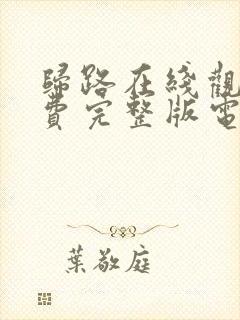 歸路在綫觀
費完整版電
葉敬庭